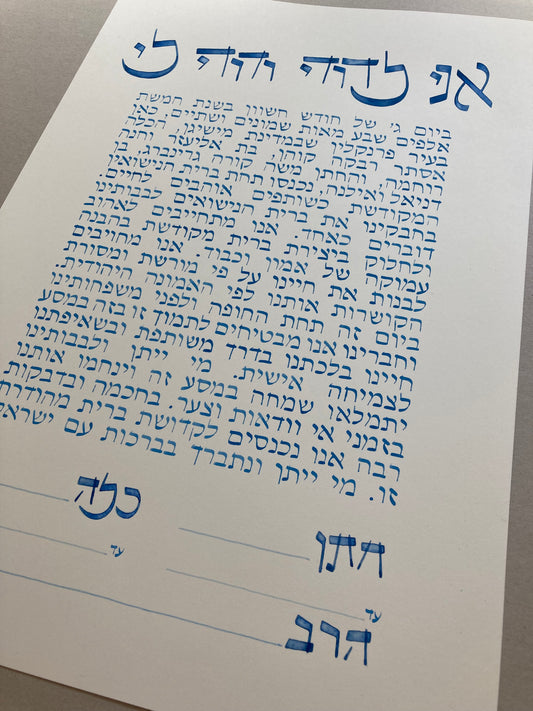 אני לדודי ודודי לי
ביום ג׳ של חודש חשוון בשנת חמשת
אלפים שבע מאות שמונים ושתיים, כאן
בעיר פרנקלין שבמדינת מישיגן, הכלה
אסתר רבקה קוהן, בת אליעזר וחנה
רוחמה, והחתן משה קורה גרינברג, בן
דניאל ואילנה, נכנסו תחת ברית הנישואין
המקודשת כשותפים אוהבים לחיים.
בחבקינו את ברית הנישואים לבבותינו
דוברים כאחד. אנו מתחייבים לאהוב
ולחלוק ביצירת ברית מקודשת בהבנה
עמוקה של אמון וכבוד. אנו מחויבים
לבנות את חיינו על פי מורשת ומסורת
הקושרות אותנו לפי האמונה היהודית.
ביום זה תחת החופה, ולפני משפחותינו
וחברינו אנו מבטיחים לתמוך זו בזה במסע
חיינו בלכתנו בדרך משותפת ובשאיפתנו
לצמיחה אישית. מי ייתן ולבבותינו
יתמלאו שמחה במסע זה וינחמו אותנו
בזמני אי וודאות וצער. בחכמה ובדבקות
רבה אנו נכנסים לקדושת ברית מהודרת
זו. מי ייתן ונתברך בברכות עם ישראל
חתן
כלה
עד
עד
הרב